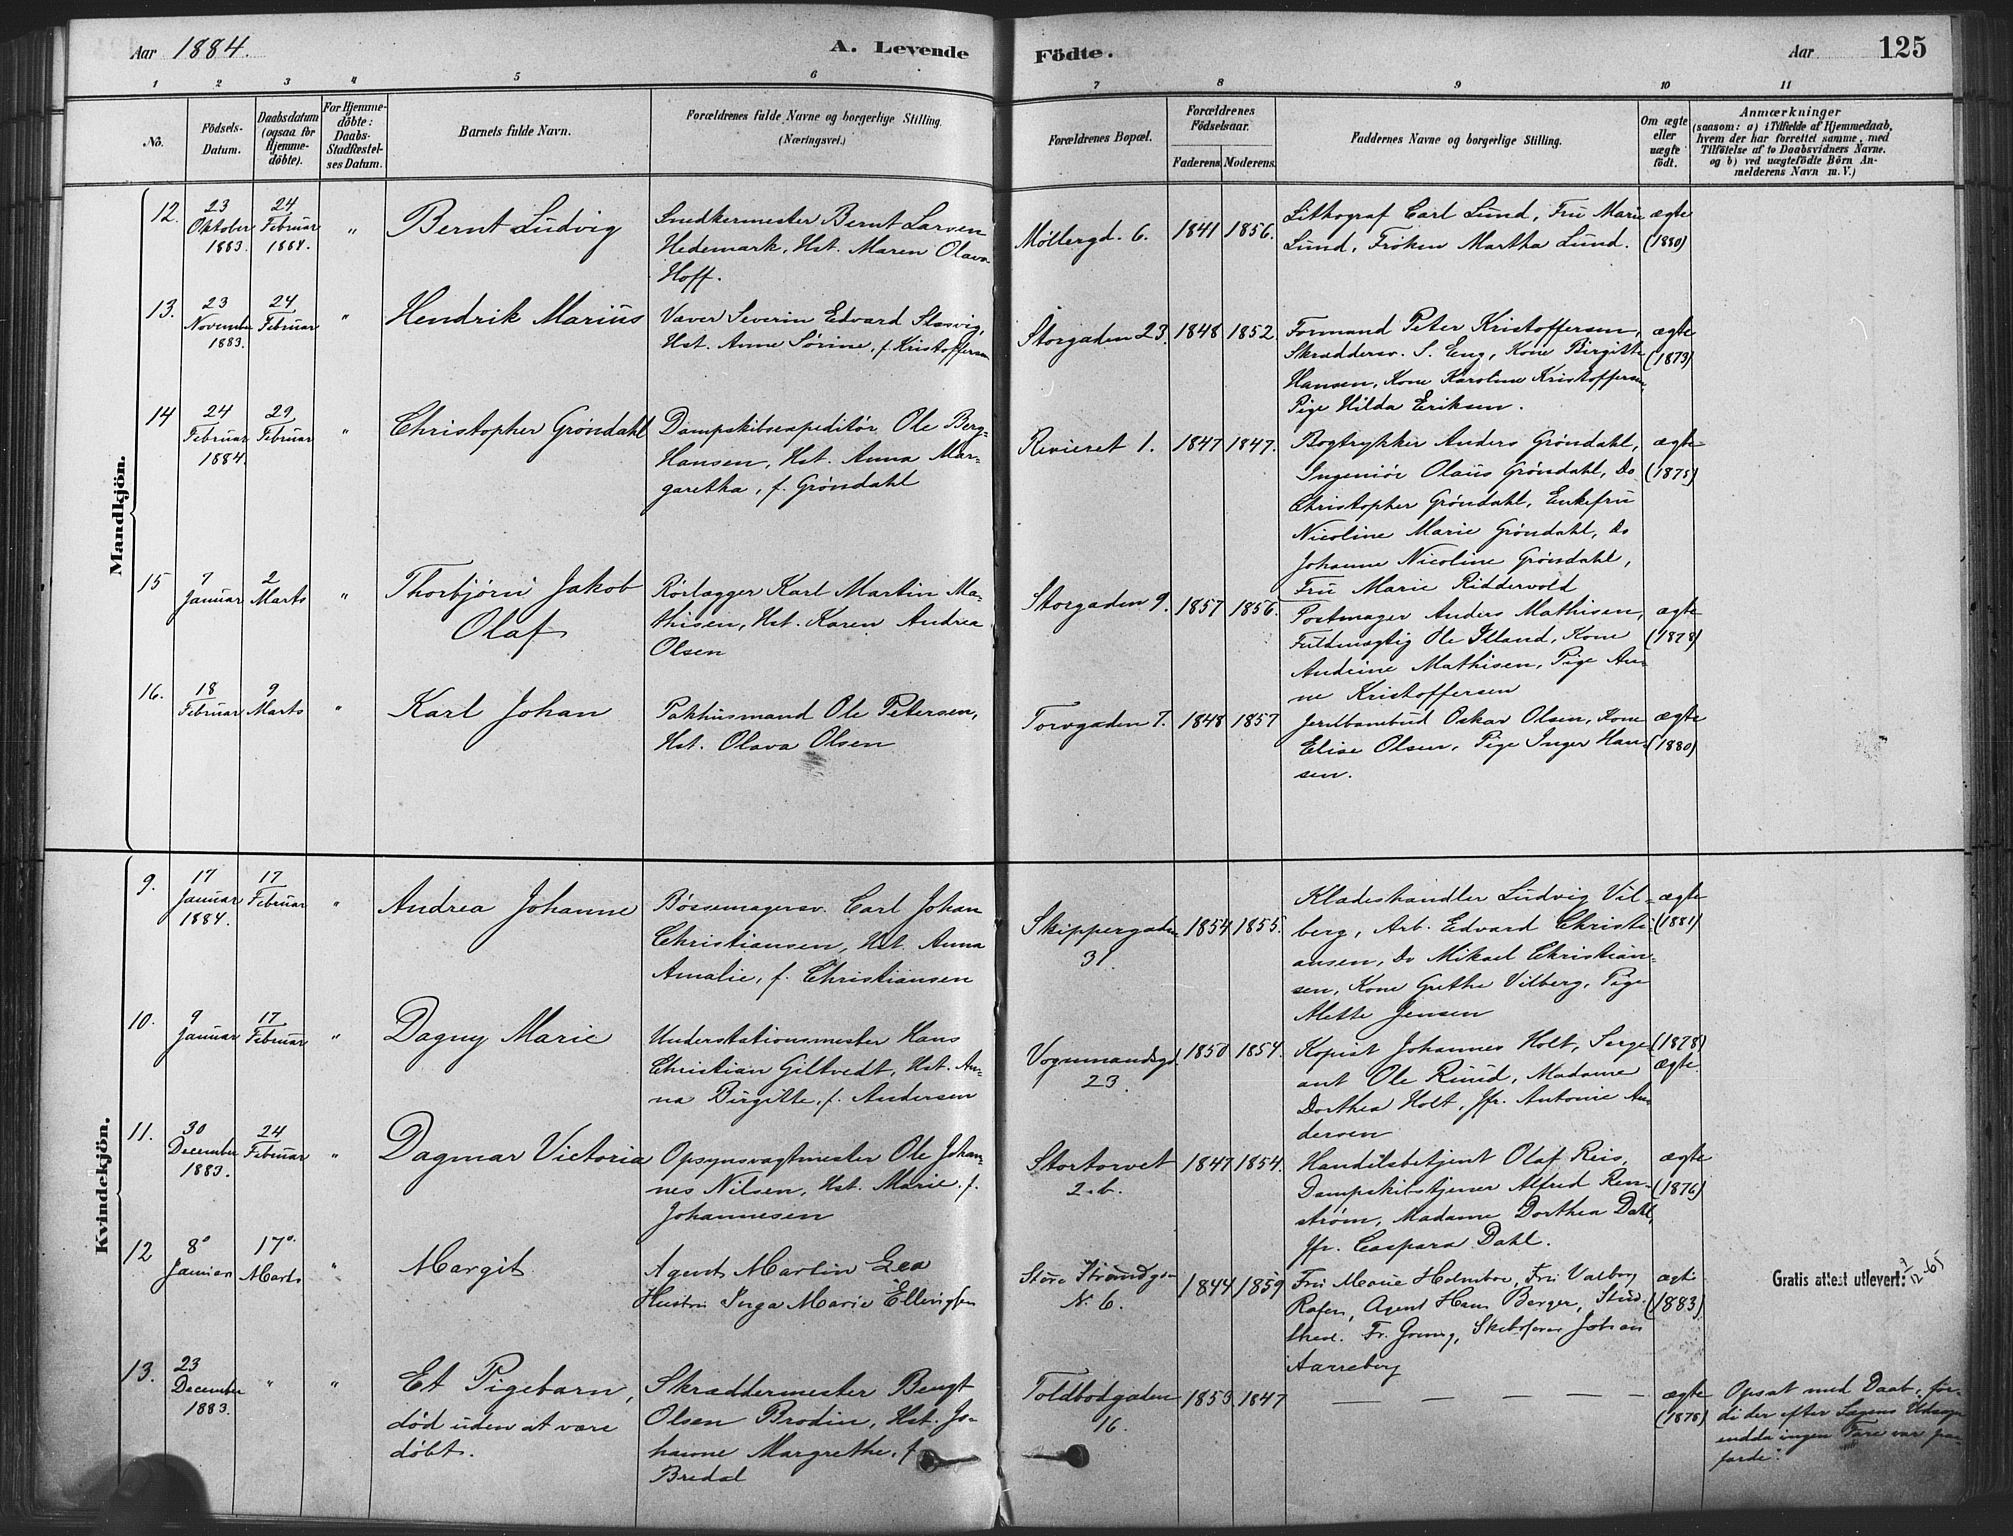 Aar 1884.
A. Levende
Födte.
Aar
125
1 2 3 4 5 6 7 8 9 10 11
No.
Födsels-
Datum.
Daabsdatum
(ogsaa för
Hjemme-
döbte).
For Hjemme-
döbte:
Daabs-
Stadfæstel-
ses Datum.
Barnets fulde Navn.
Forældrenes fulde Navne og borgerlige Stilling.
(Næringsvei.)
Forældrenes Bopæl.
Forældrenes
Födselsaar.
Faderens.
Moderens.
Faddernes Navne og borgerlige Stilling.
Om ægte
eller
uægte
födt.
Anmærkninger
(saasom: a) i Tilfælde af Hjemmedaab,
hvem der har forrettet samme, med
Tilföielse af to Daabsvidners Navne.
og b) ved uægtefödte Börn An-
melderens Navn m. V.)
Mandkjön.
12.
23
Oktober
1883.
24
Februar
1884.
"
Bernt Ludvig
Snedkermester Bernt Larsen
Hedemark, Hst. Maren Olava
Hoff.
Møllergd. 6.
1841
1856.
Lithograf Carl Lund, Fru Marie
Lund, Frøken Martha Lund.
ægte
(1880)
13.
23
November
1883.
24
Februar
"
Hendrik Marius
Væver Severin Edvard Slasvig,
Hst. Anne Sørine, f. Kristoffersen
Storgaden 23.
1848
1852.
Formand Peter Kristoffersen,
Skræddersv. S. Eng, Kone Birgitte
Hansen, Kone Karoline Kristoffersen,
Pige Hilda Eriksen.
ægte
(1873)
14
24
Februar
1884.
29
Februar
"
Christopher Grøndahl
Dampskibsexpeditør Ole Berg-
Hansen, Hst. Anna Mar-
garetha, f. Grøndahl
Revieret 1.
1847
1847.
Bogtrykker Anders Grøndahl,
Ingeniør Olaus Grøndahl, Do
Christopher Grøndahl, Enkefru
Nicoline Marie Grøndahl, Do
Johanne Nicoline Grøndahl,
Fru Marie Riddervold
ægte
(1875)
15
7
Januar
2
Marts
"
Thorbjørn Jakob
Olaf
Rørlægger Karl Martin Ma-
thisen, Hst. Karen Andrea
Olsen
Storgaden 9.
1857
1856.
Portmager Anders Mathisen,
Fuldmægtig Ole Illand, Kone
Andrine Mathisen, Pige An-
ne Kristoffersen
ægte
(1878)
16.
18
Februar
9
Marts
"
Karl Johan
Pakhusmand Ole Petersen,
Hst. Olava Olsen
Torvgaden 7.
1848
1857
Jernbanebud Oskar Olsen, Kone
Elise Olsen, Pige Inger Han-
sen.
ægte
(1880)
Kvindekjön.
9.
17
Januar
1884.
17
Februar
"
Andrea Johanne
Bøssemagersv. Carl Johan
Christiansen, Hst. Anna
Amalie, f. Christiansen
Skippergaden
31
1854
1855.
Klædeshandler Ludvig Vil-
berg, Arb. Edvard Christi-
ansen, Do Mikael Christian-
sen, Kone Grethe Vilberg, Pige
Mette Jensen
ægte
(1881)
10.
9
Januar
17
Februar
"
Dagny Marie
Understationsmester Hans
Christian Giltvedt, Hst. An-
na Birgitte, f. Andersen
Vognmandsgd.
23.
1850
1854.
Kopist Johannes Holt, Serge-
ant Ole Ruud, Madame
Dorthea Holt, Jfr. Antonie An-
dersen
(1878)
ægte.
11.
30
December
1883.
24
Februar
"
Dagmar Victoria
Opsynsvagtmester Ole Johan-
nes Nilsen, Hst. Marie, f.
Johannesen
Stortorvet
2.b.
1847
1854.
Handelsbetjent Olaf Reis,
Dampskibstjener Alfred Ren-
strøm, Madame Dorthea Dahl,
Jfr. Caspara Dahl.
ægte
(1876)
12
8
Januar
17
Marts
"
Margit
Agent Martin Lea
Hustru Inga Marie Ellingsen
Store Strandga-
N. 6.
1844
1859
Fru Marie Holmboe, Fru Valborg
Rafen, Agent Hans Berger, Stud.
Fr. Skibsfører Johan
Aarreberg
ægte
(1883)
Gratis attest utlevert:
12-65
13.
23
December
1883.
"
"
Et Pigebarn,
død uden at være
døbt.
Skræddermester Bengt
Olsen Brodin, Hst. Jo-
hanne Margrethe, f.
Bredal
Toldbodgaden
16.
1853
1847
— — — — —
ægte
(1878)
Opsat med Daab, for-
di der efter Lægens Udsagn
endda ingen Fare var paa
farde".